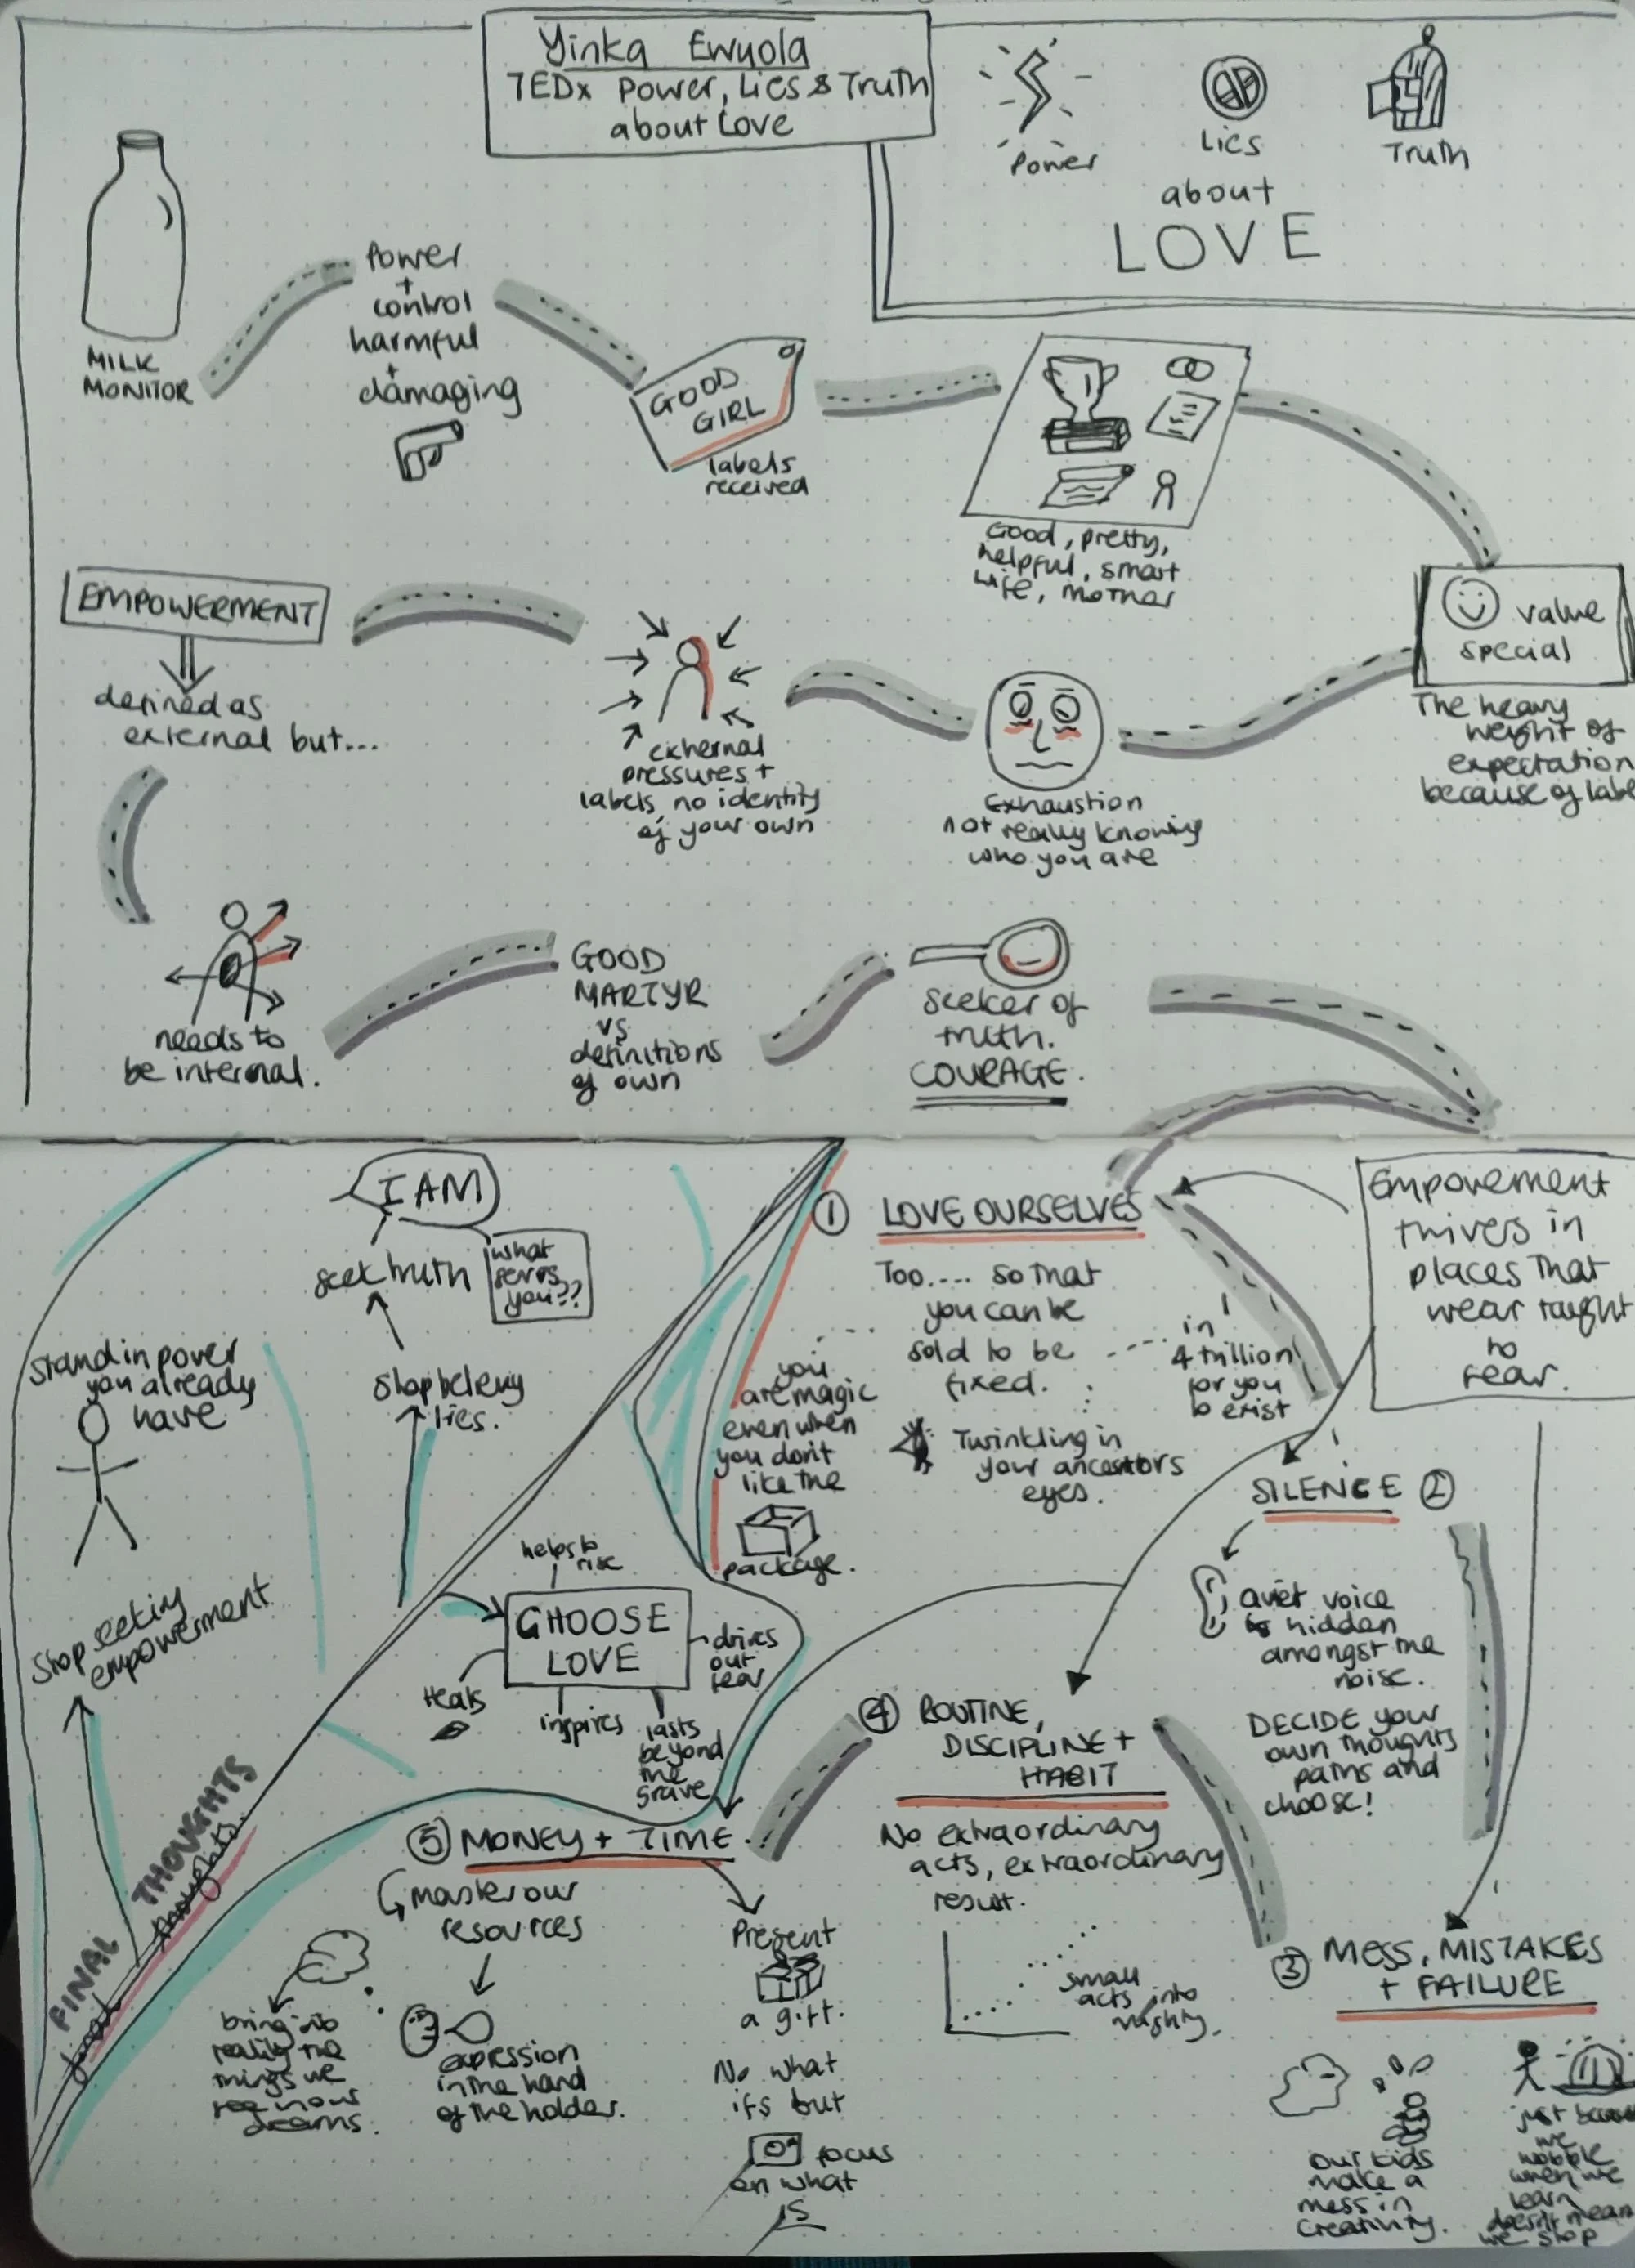 Yinka Ewuola
TEDx Power, Lies & Truth
about Love
Power
Lies
Truth
about
LOVE
MILK
MONITOR
Power
+
control
harmful
+
damaging
GOOD
GIRL
labels
received
Good, pretty,
helpful, smart
wife, mother
value
special
The heavy
weight of
expectation
because of labe
Exhaustion
not really knowing
who you are
external
pressures +
labels, no identity
of your own
EMPOWERMENT
defined as
external but...
needs to
be internal.
GOOD
MARTYR
vs
definitions
of own
Seeker of
truth.
COURAGE.
Empowement
thrives in
places that
wear taught
to
fear.
① LOVE OURSELVES
Too.... so that
you can be
sold to be
fixed.
in
4 trillion
for you
to exist
Twinkling in
your ancestors
eyes.
you
are magic
even when
you don't
like the
package.
SILENCE ②
quiet voice
is hidden
amongst the
noise.
DECIDE your
own thoughts
paths and
choose!
③ MESS, MISTAKES
+ FAILURE
our kids
make a
mess in
creativity.
just because
we
wobble
when we
learn
doesn't mean
we stop
④ ROUTINE,
DISCIPLINE +
HABIT
No extraordinary
acts, extraordinary
result.
small
acts into
mighty.
⑤ MONEY + TIME
master our
resources
bring into
reality the
things we
see in our
dreams.
expression
in the hand
of the holder.
Present
a gift.
No what
ifs but
focus
on what
is
FINAL THOUGHTS
final thoughts.
Stop seeking
empowerment
Stand in power
you already
have
Stop believing
lies.
seek truth
what
serves
you??
I AM
CHOOSE
LOVE
helps to
rise
drives
out
fear
lasts
beyond
the
grave
inspires
Heals